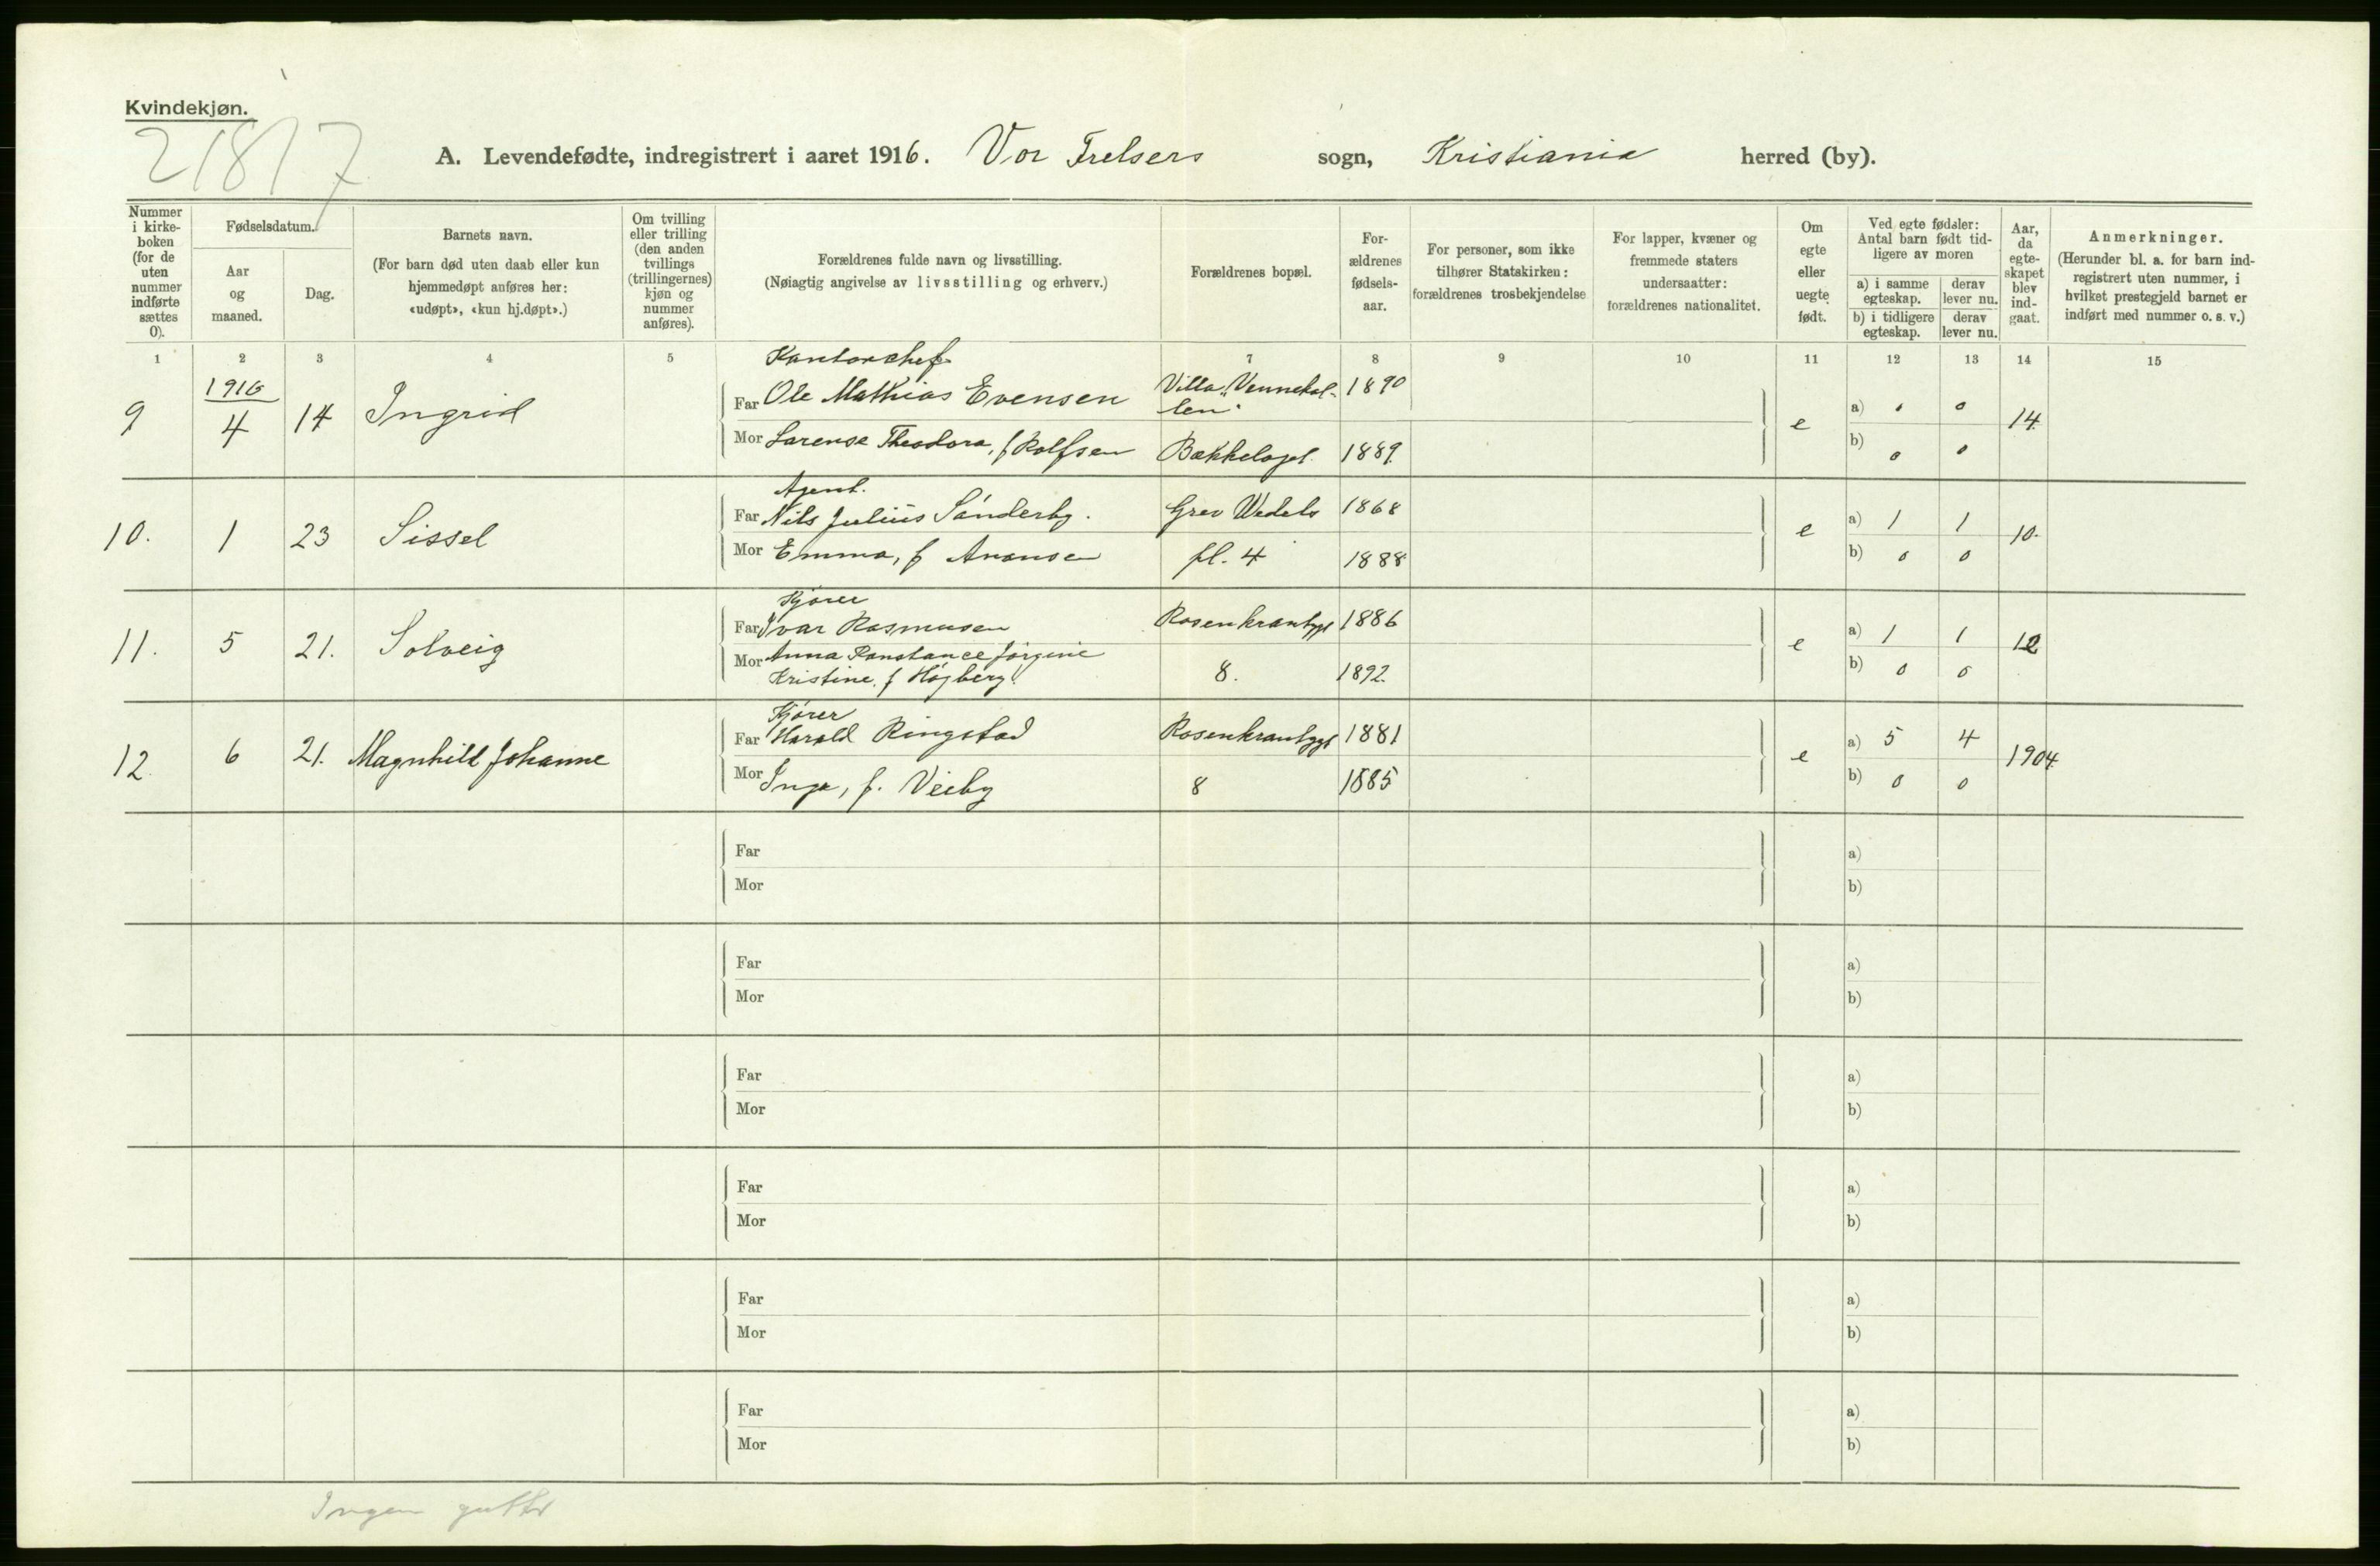 Kvindekjøn.
21817
A. Levendefødte, indregistrert i aaret 1916. Vor Frelsers sogn, Kristiania herred (by).
Nummer i kirke-boken (for de uten nummer indførte sættes 0).
Fødselsdatum.
Aar og maaned.
Dag.
Barnets navn.
(For barn død uten daab eller kun hjemmedøpt anføres her: «udøpt», «kun hj.døpt».)
Om tvilling eller trilling (den anden tvillings (trillingernes) kjøn og nummer anføres).
Forældrenes fulde navn og livsstilling.
(Nøiagtig angivelse av livsstilling og erhverv.)
Forældrenes bopæl.
For-ældrenes fødsels-aar.
For personer, som ikke tilhører Statskirken: forældrenes trosbekjendelse
For lapper, kvæner og fremmede staters undersaatter: forældrenes nationalitet.
Om egte eller uegte født.
Ved egte fødsler: Antal barn født tid-ligere av moren
a) i samme egteskap. derav lever nu.
b) i tidligere egteskap. derav lever nu.
Aar, da egte-skapet blev ind-gaat.
Anmerkninger.
(Herunder bl. a. for barn ind-registrert uten nummer, i hvilket prestegjeld barnet er indført med nummer o. s. v.)
1 2 3 4 5 7 8 9 10 11 12 13 14 15
Kontorchef
1916
9 4 14 Ingrid Far Ole Mathias Evensen Villa "Vennehol-len" 1890 e a) 0 0 14
Mor Larense Theodora, f Rolfsen Bækkelaget. 1889. b) 0 0
Agent.
10. 1 23 Sissel Far Nils Julius Sánderby. Grev Wedels 1868 e a) 1 1 10.
Mor Emma, f Aronsen pl. 4 1888 b) 0 0
Kjører
11. 5 21. Solveig Far Ivar Rasmusen Rosenkrantzgt 1886 e a) 1 1 12
Mor Anna Konstance Jørgine
Kristine. f Høgberg. 8. 1892. b) 0 0
Kjører
12. 6 21. Magnhild Johanne Far Harald Ringstad Rosenkrantzgt 1881 e a) 5 4 1904.
Mor Inga, f. Vieby 8 1885 b) 0 0
Far a)
Mor b)
Far a)
Mor b)
Far a)
Mor b)
Far a)
Mor b)
Far a)
Mor b)
Far a)
Mor b)
Ingen gutter